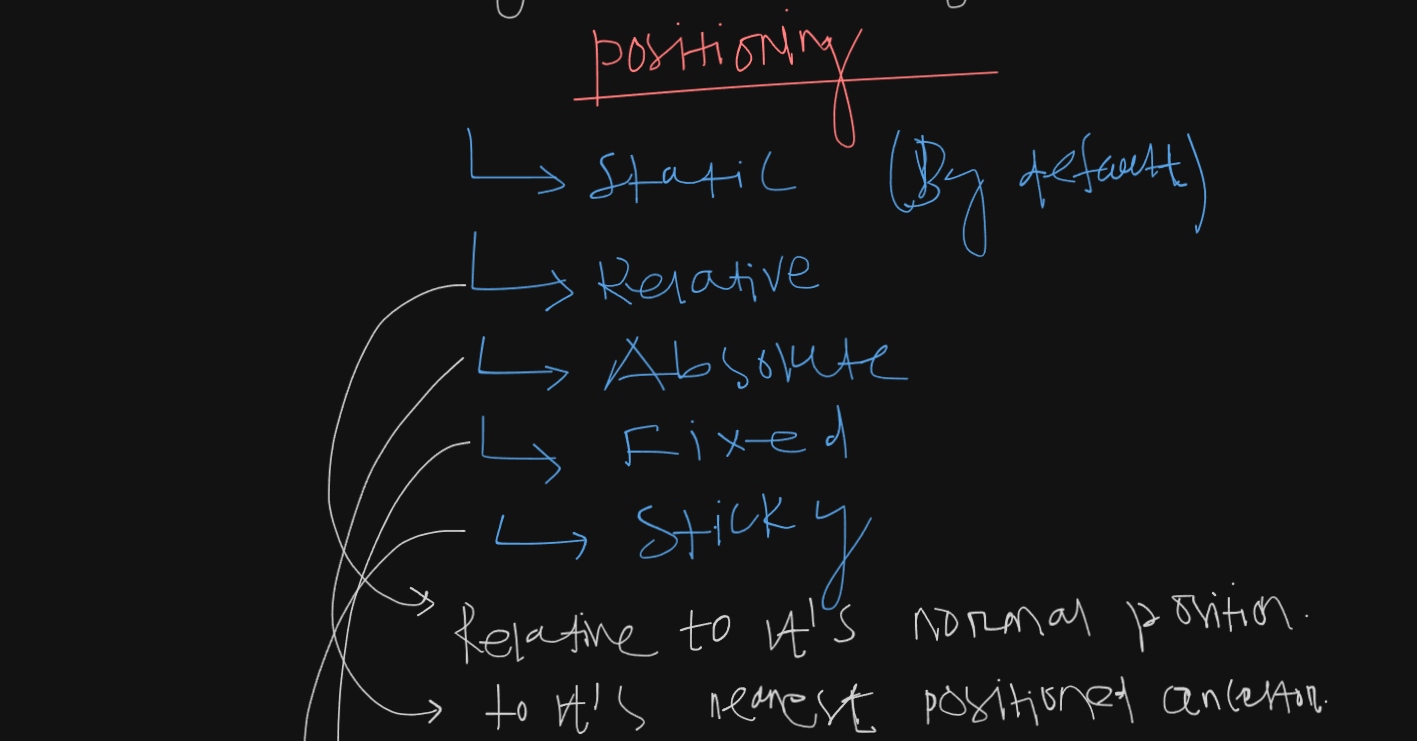 positioning
Static (By default)
Relative
Absolute
Fixed
Sticky
Relative to it's normal position.
to it's nearest positioned ancestor.